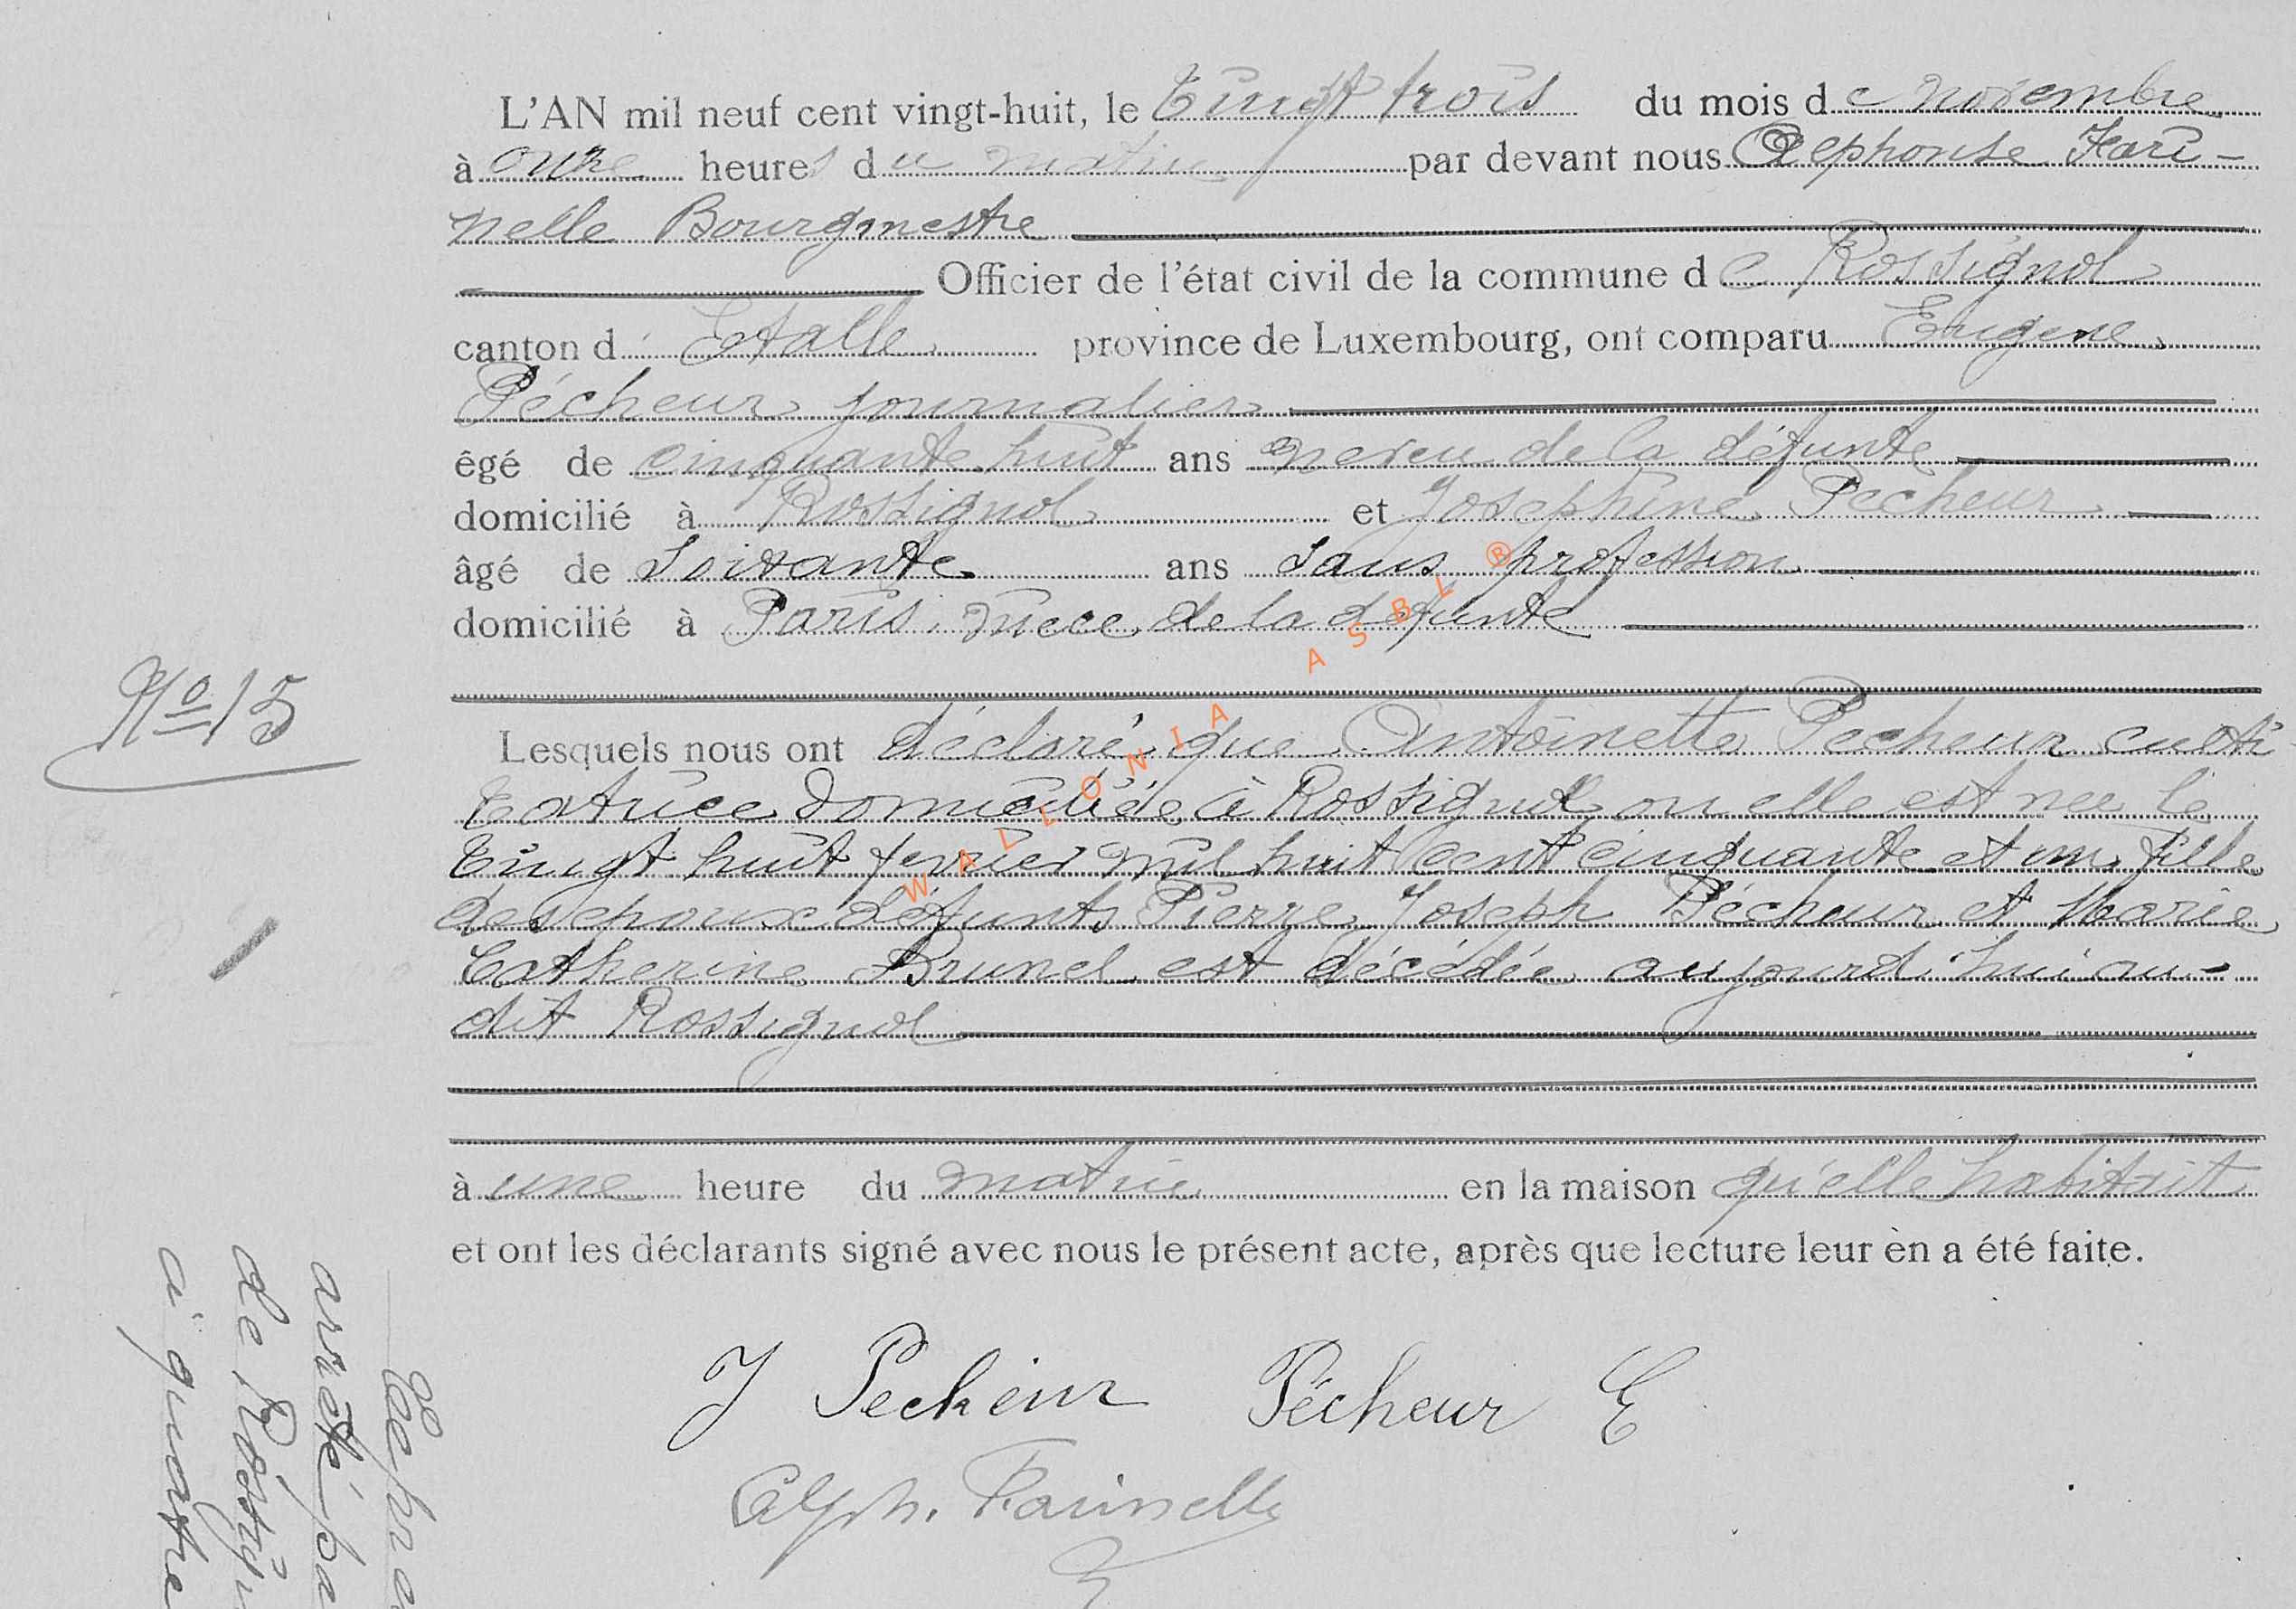 L'AN mil neuf cent vingt-huit, le Vingt trois du mois de novembre
à onze heures du matin par devant nous Alphonse Fari-
nelle Bourgmestre
Officier de l'état civil de la commune de Rossignol
canton d' Etalle province de Luxembourg, ont comparu Eugene
Pécheur journalier
êgé de cinquante huit ans neveu de la défunte
domicilié à Rossignol et Joséphine Pecheur
âgé de Soixante ans sans profession
domicilié à Paris, nièce de la défunte
No 15
Lesquels nous ont déclaré que Antoinette Pecheur culti
vatrice domiciliée à Rossignol ou elle est nee le
Vingt huit fevrier mil huit cent cinquante et un, fille
des epoux défunts Pierre Joseph Pécheur et Marie
Catherine Brunel est décédée aujourd'hui au-
dit Rossignol
à une heure du matin en la maison qu'elle habitait
et ont les déclarants signé avec nous le présent acte, après que lecture leur èn a été faite.
J Pecheur Pécheur E
Alph. Farinelle
arrêté pa
de Rossign
à quatre
WALLONIA ASBL ®